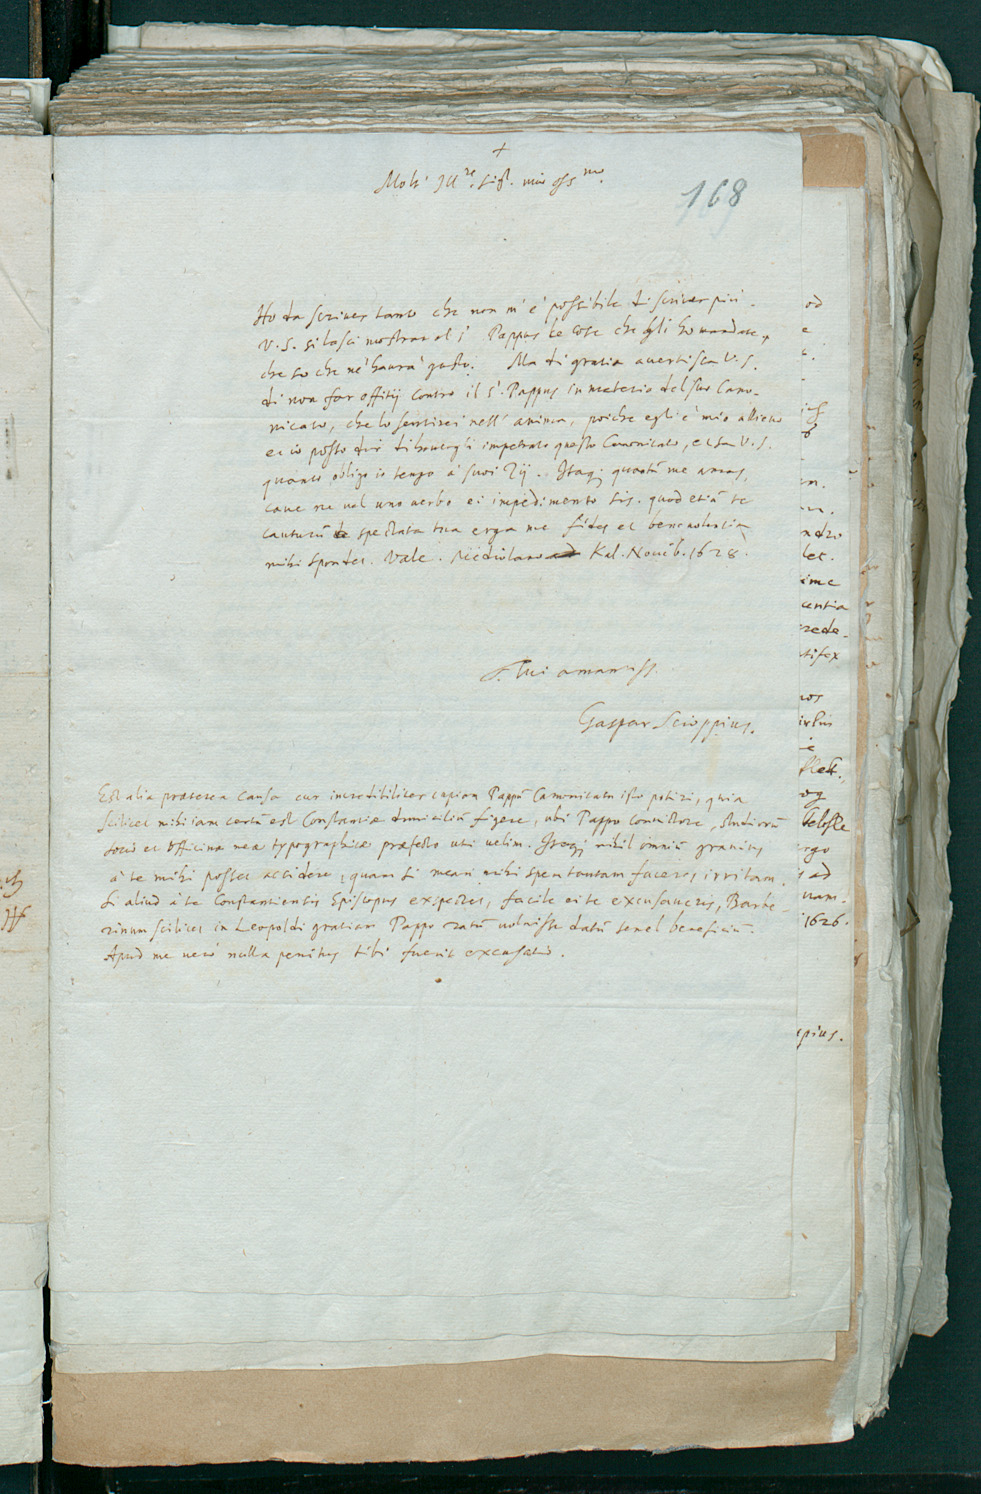 +
Molt' Ill.re Sig.r mio oss.mo
168
Ho da scriver tanto che non m'è possibile di scriver più.
V.S. si lasci mostrar al s.r Pappus le cose che gli ho mandate,
che so che ne havrà gusto. Ma di gratia avertisca V.S.
di non far offitij contro il s.r Pappus in materia del suo Cano-
nicato, che lo sentirei nell' anima, poiche egli è mio allievo
et io posso dir di havergli impetrato questo Canonicato, et sa V.S.
quanto obligo io tengo a' suoi Zij. Itaq; quantũ me amas,
cave ne vel uno verbo ei impedimento sis. quod etiã te
cauturũ spectata tua erga me fides et benevolentia
mihi spondet. Vale. Mediolano Kal. Novĩb. 1628.
T. tui amantiss.
Gaspar Scioppius.
Est alia præterea causa cur incredibiliter cupiam Pappũ Canonicatu isto potiri, quia
scilicet mihi iam certũ est Constantiæ domicilium figere, ubi Pappo convictore, studiorũ
socio et officinæ meæ typographicæ præfecto uti velim. Itaq; nihil omniũ gravius
a te mihi posset accidere, quam si meam mihi spem tantam faceres irritam.
Si aliud a te Constantiensis Episcopus expectet, facile ei te excusaveris, Barbe
rinum scilicet in Leopoldi gratiam Pappo ratũ voluisse datũ semel beneficiũ.
Apud me verò nulla penitus tibi fuerit excusatio.
od
n.
ndro
let.
ime
centia
rede-
tifex
nos
flect.
ergo
ad
nam-
1626.
pius.